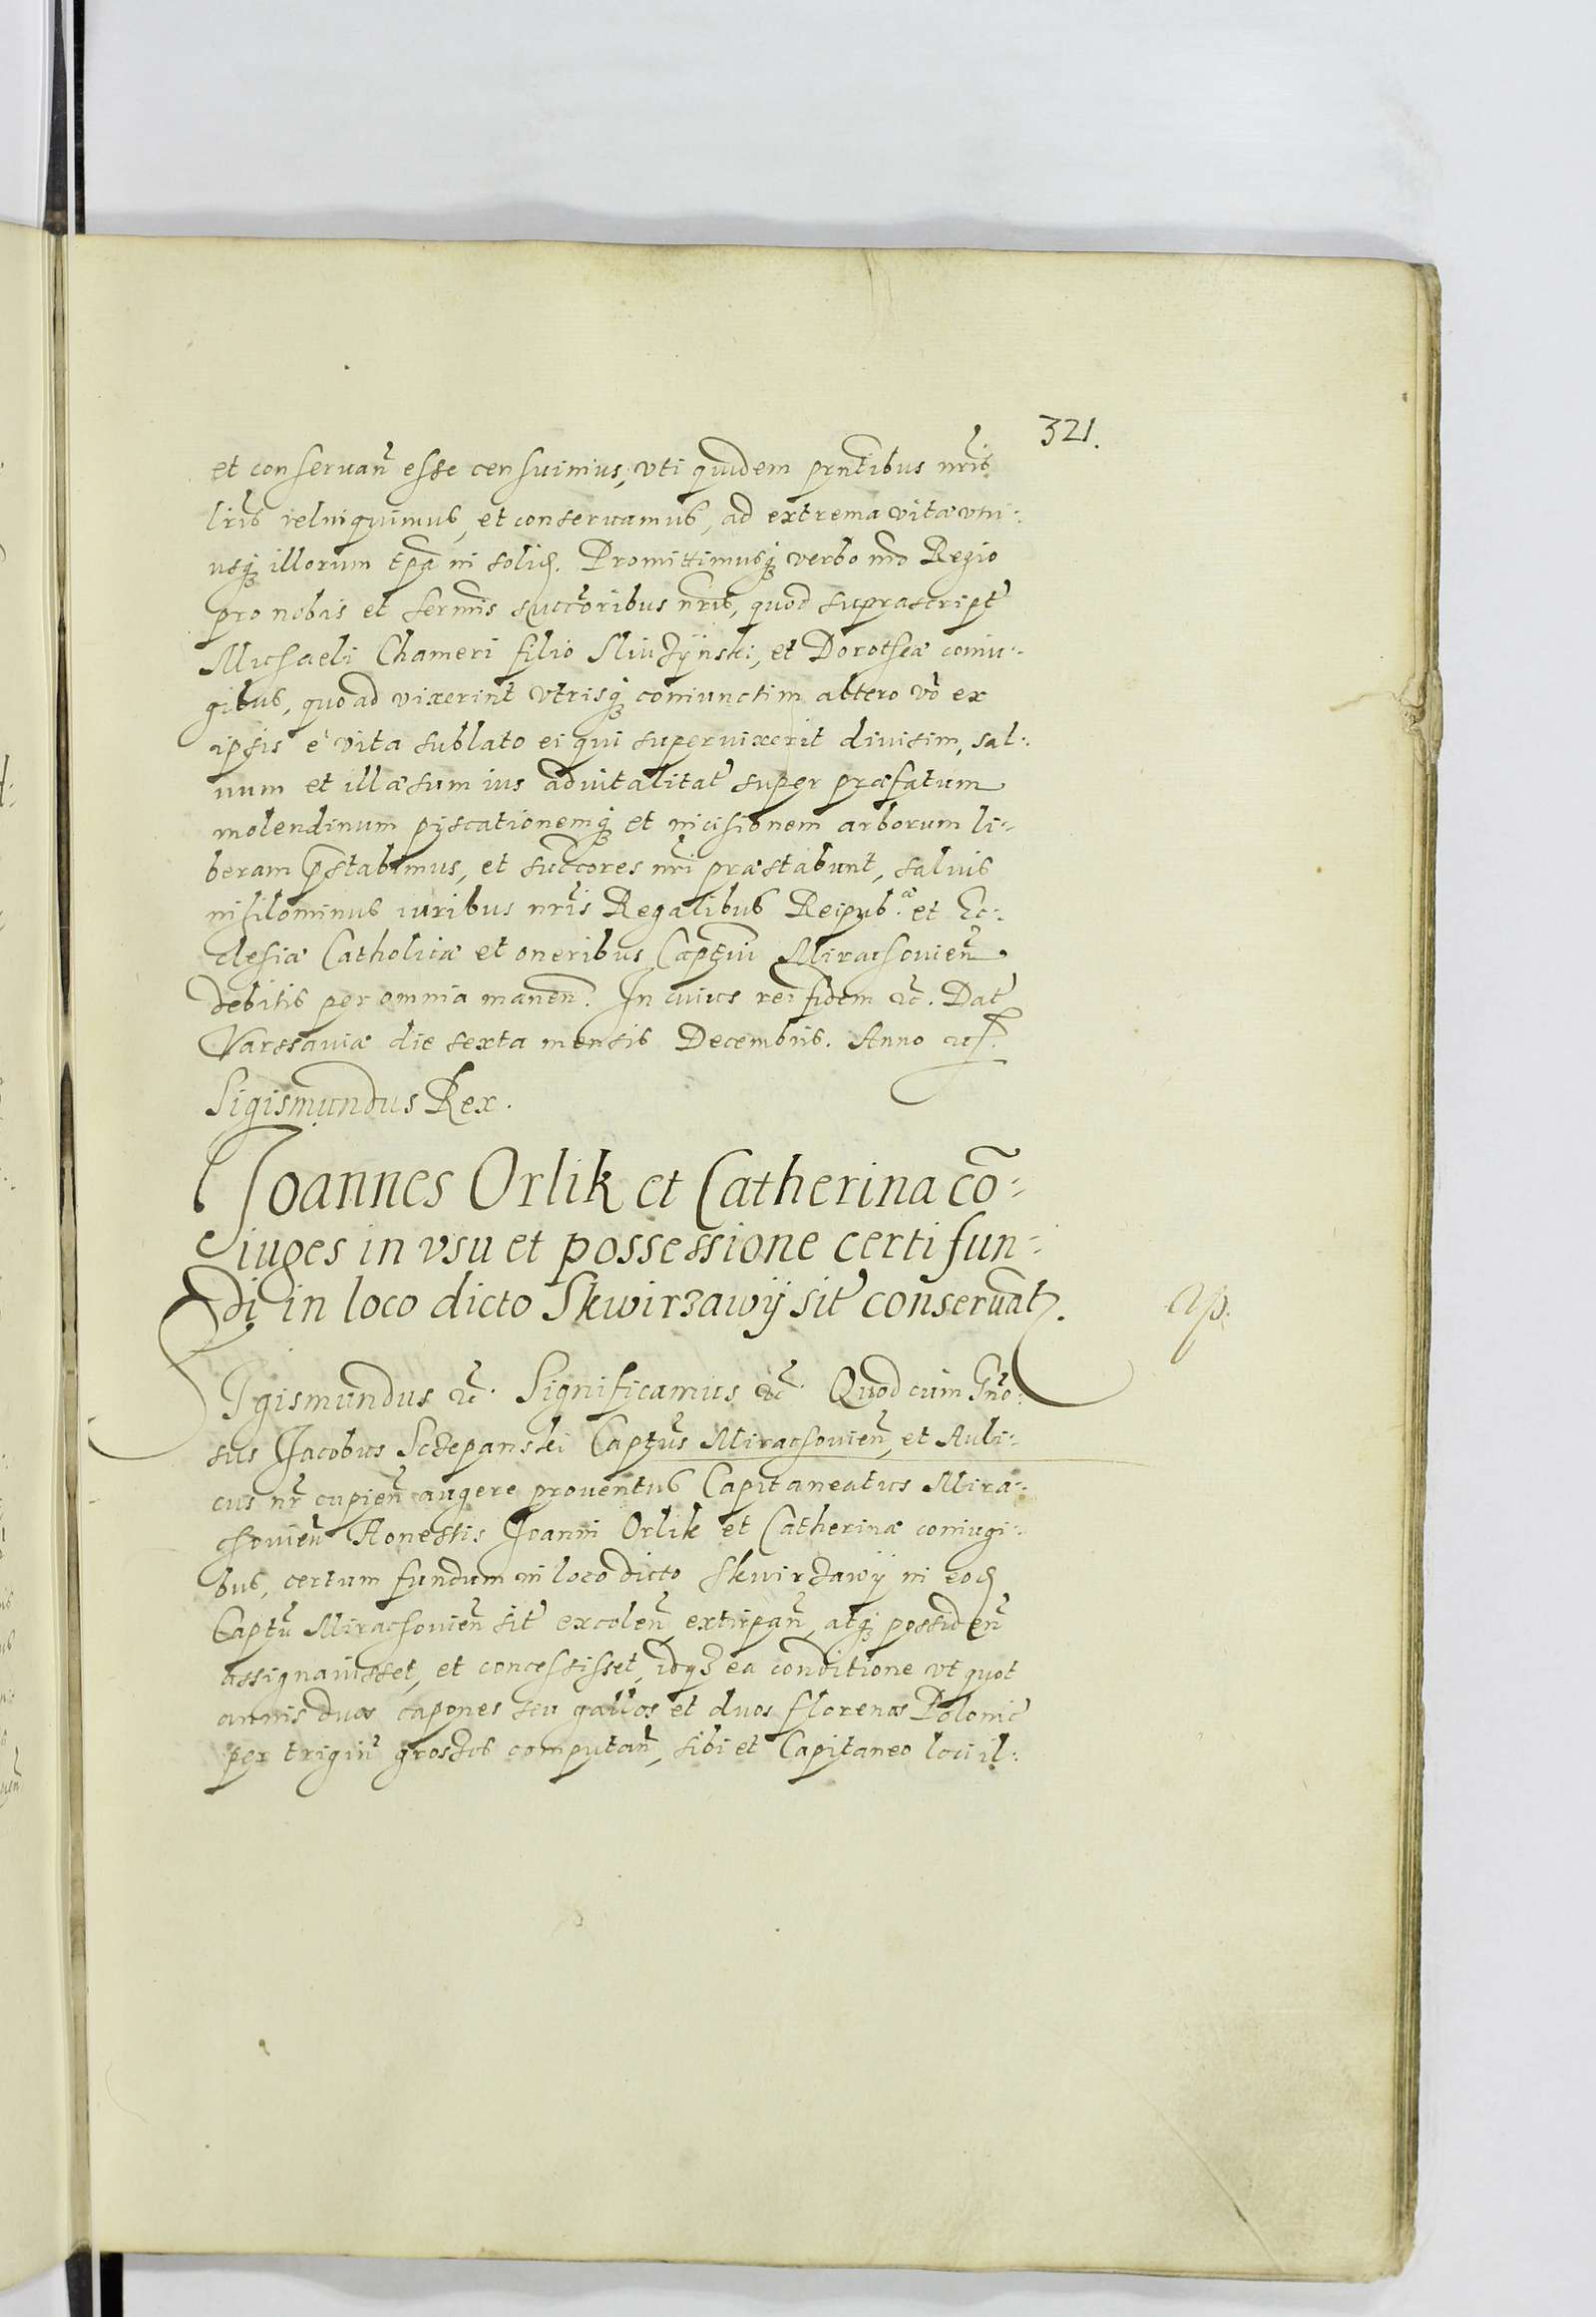 321.
et conseruan̄ esse censuimus, vti quidem pñtibus nr̄is
lr̄is relinquimus, et conseruamus, ad extrema vitæ vni-
usq; illorum tp̄a in solid. Promittimusq; verbo nr̄o Regio
pro nobis et sermis succ̄oribus nr̄is, quod suprascript̄
Michaeli Chameri filio Sliuzÿnski, et Dorotheæ coniu-
gibus, quoad vixerint vtrisq; coniunctim altero vō ex
ipsis è vita sublato ei qui superuixerit diuisim, sal-
uum et illæsum ius aduitalitat̄ super præfatum
molendinum piscationemq; et incisionem arborum li-
beram p̄stabimus, et succ̄ores nr̄i præstabunt, saluis
nihilominus iuribus nr̄is Regalibus Reipub.æ et Ec-
clesiæ Catholicæ et oneribus Captūi Mirachouien̄
debitis per omnia manen̄. In cuius rei fidem &c̄. Dat̄
Varssauiæ die sexta mensis Decembris. Anno ut s̄.
Sigismundus Rex.
Joannes Orlik et Catherina cō-
iuges in vsu et possessione certi fun-
di in loco dicto Skwirzawÿ sit̄ conseruat̄.
ap.
Sigismundus &c̄. Significamus &c̄. Quod cum Gn̄o-
sus Jacobus Sczepanski Captn̄s Mirachouien̄, et Auli-
cus nr̄ cupien̄ augere prouentus Capitaneatus Mira-
chouien̄ Honestis Joanni Orlik et Catherinæ coniugi-
bus, certum fundum in loco dicto Skwirzawÿ in eod
Captū Mirachouien̄ sit̄ excolen̄ extirpan̄, atq; possiden̄
assignauisset, et concessisset, idq; ea conditione vt quot
annis duos capones seu gallos et duos florenos Polonic̄
per trigin̄ groszos computan̄, sibi et Capitaneo loci il-